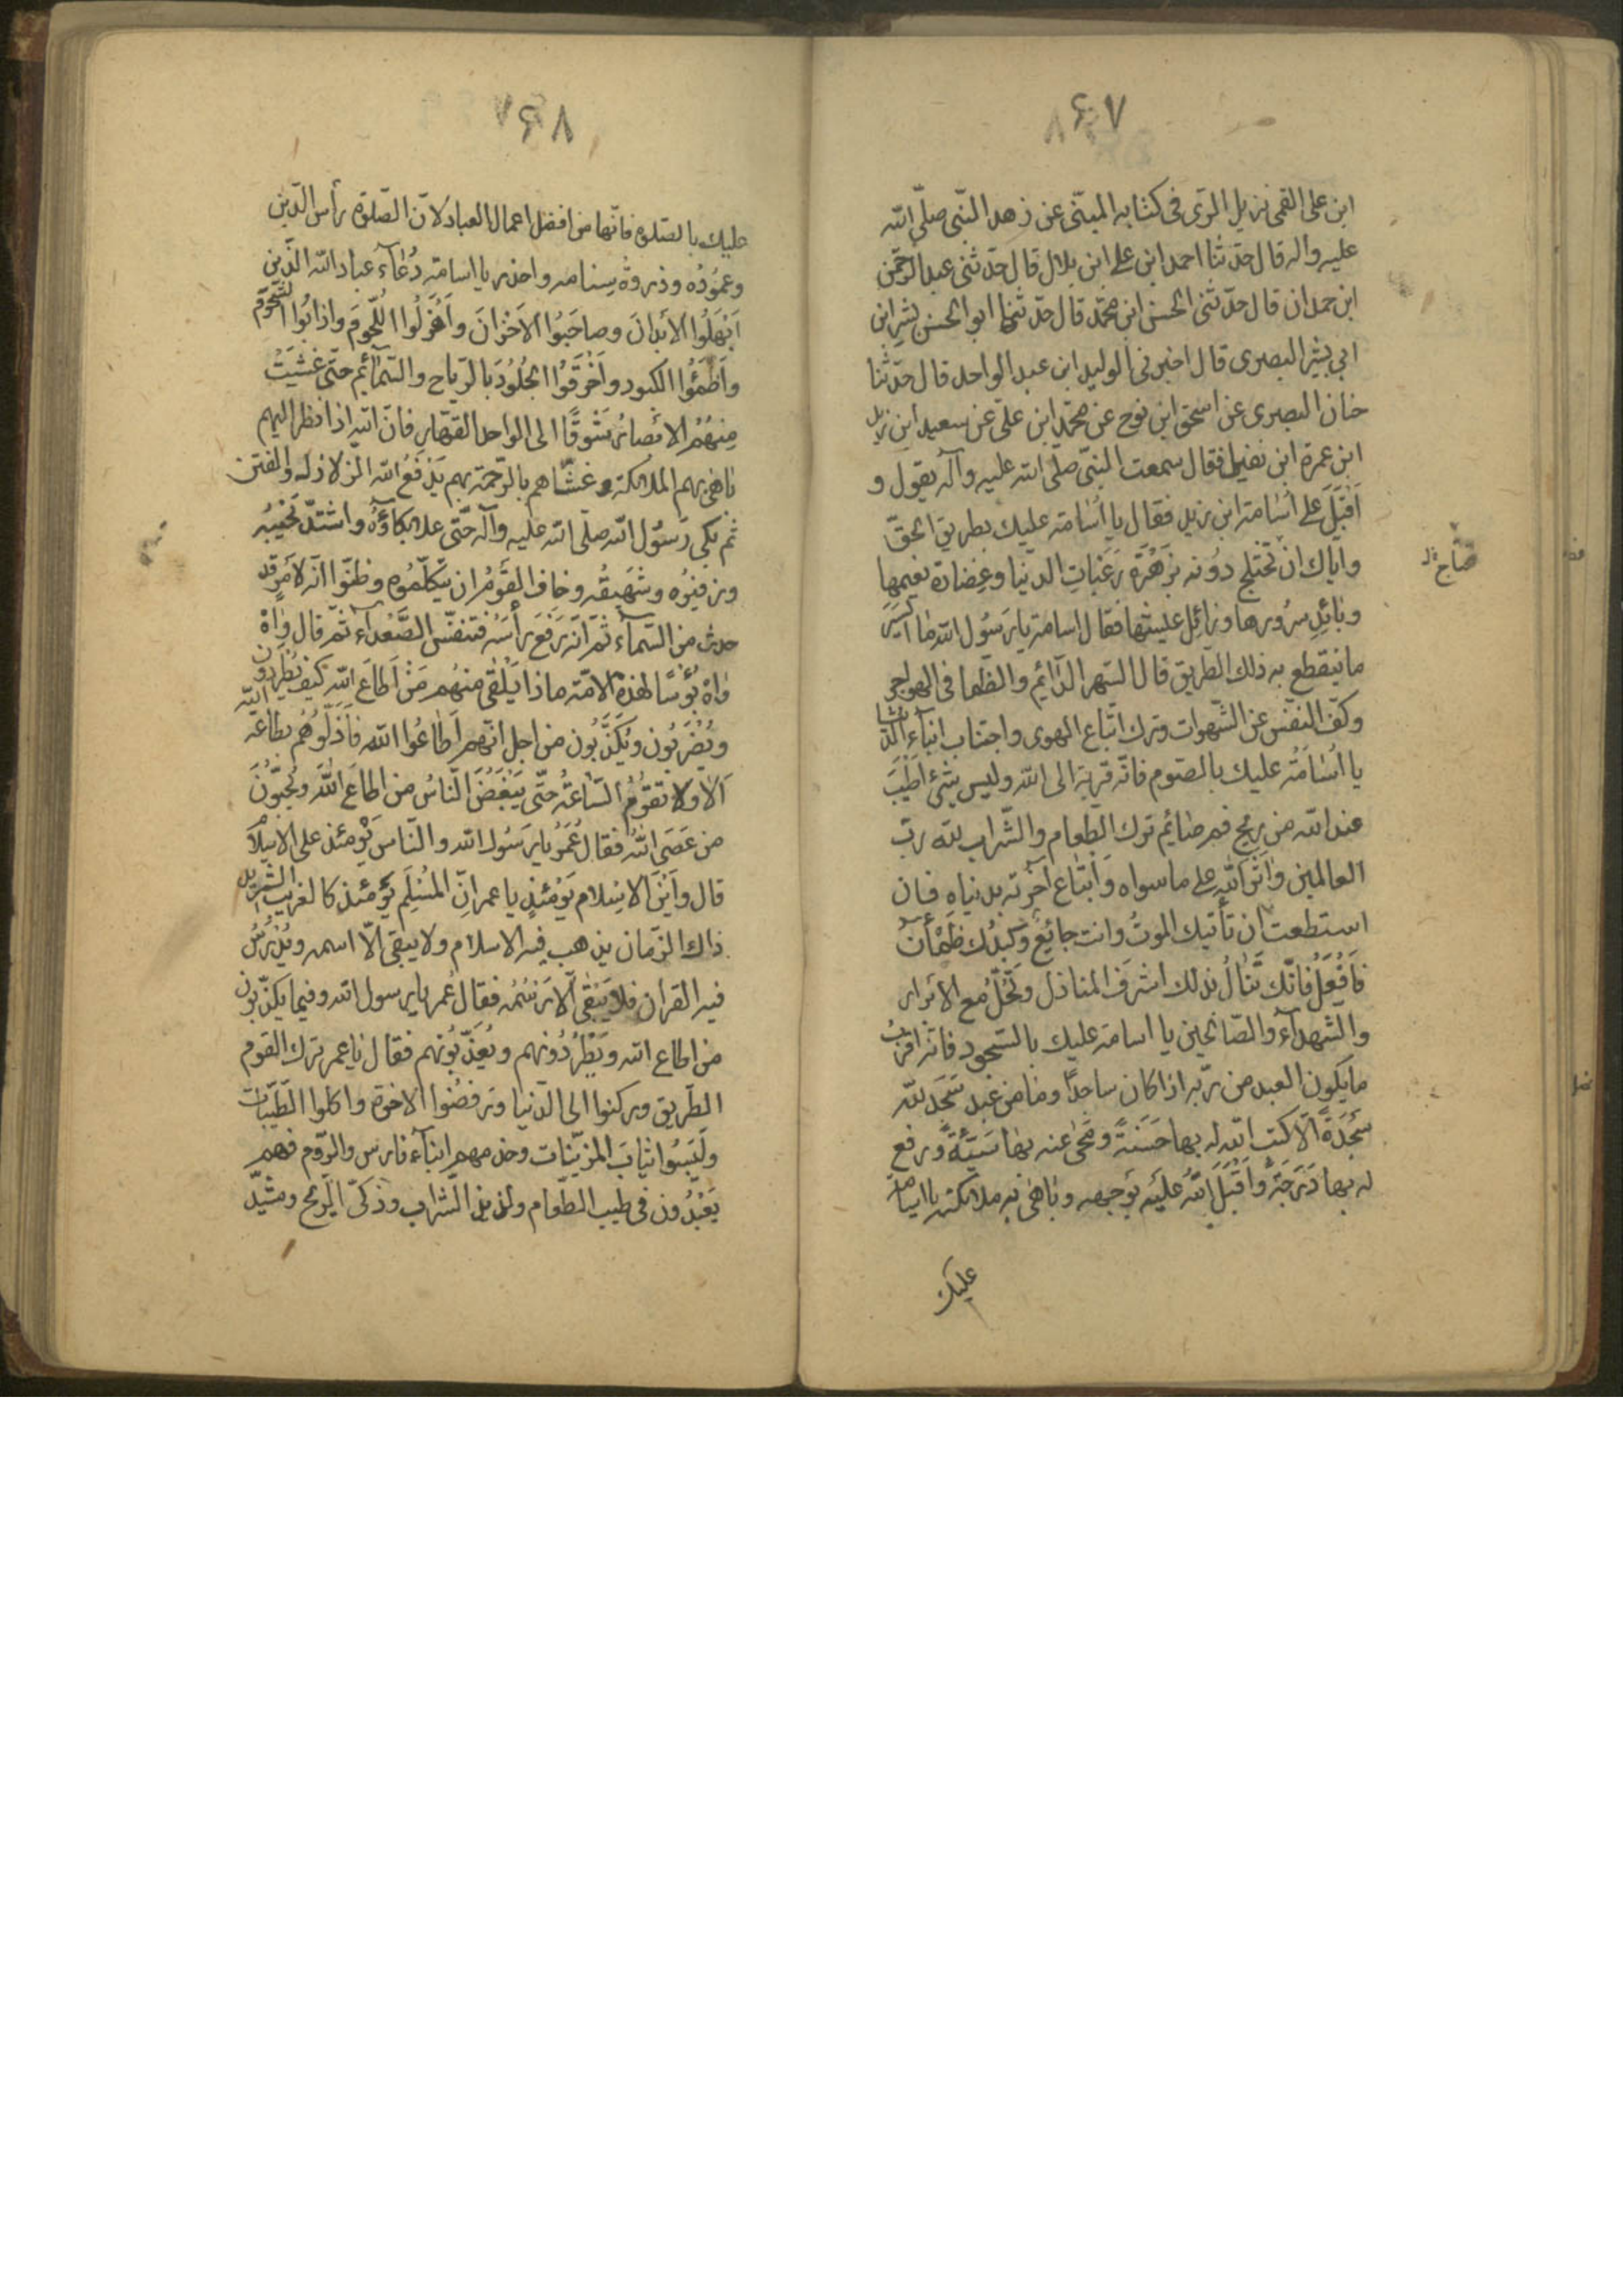 ۶۷
ابن على القمى نزيل الرّى فى كتابه المبنّى عن زهد النّبى صلّى الله
عليه واله قال حدّثنا احمد ابن على ابن بلال قال حدّثنى عبد الرّحمن
ابن حمدان قال حدّثنى الحسن ابن محمّد قال حدّثنا ابو الحسن بشر ابن
ابى بشر البصرى قال اخبرنى الوليد ابن عبد الواحد قال حدّثنا
حنان البصرى عن اسحق ابن نوح عن محمّد ابن علىّ عن سعيد ابن زيد
ابن عمرة ابن نفيل فقال سمعت النّبىّ صلّى الله عليه وآله يقول و
اَقْبَلَ على اُسامة ابن زيد فقال يا اُسٰامة عليك بطريق الحقّ
واياك ان تختلج دوُنه بزَهْرَة رَغَباتِ الدنيا وغِضارة نعيمها
وبائِدِ سرُورها وزائِلِ عيشها فقال اسامة يا رسوُل الله ما ايسَر
ما ينقطع به ذلك الطّريق قال السّهر الدّائِم والظّما فى الهواجر
وكفّ النفْس عن الشّهوات وترك اتّباع الهوى واجتناب ابناء الدّنيا
يا اُسٰامَة عليك بالصّوم فانّه قربة الى الله وليس شئ اَطْيَبَ
عند الله من ريح فم صٰائِم ترك الطّعام والشّراب لله ربّ
العالمين واثر الله على ما سواه وَابتٰاع آخرته بدنياه فان
استطعت ان تأتيك الموتُ وانت جائِع وَكبدُك ظَمْأن
فَافْعَلْ فانّك تَنٰالُ بذلك اشرَف المنازل وَتَحُلُّ مع الابرار
والشهدآء والصّالحين يا اسامة عليك بالسّجود فانّه اقربُ
ما يكون العبد من ربّه اذا كان ساجدًا وما من عَبد سَجَد لله
سَجْدَةً الّا كتب الله له بها حَسَنَةً ومَحىٰ عنه بهٰا سَيّئَةً ورفع
له بها دَرَجَةً وَاَقْبَلَ الله عليه بوَجهه وبٰاهٰى به ملائكته يا اسامة
عليك
۶۸
عليك بالصّلوة فانّها من افضل اعمال العباد لانّ الصّلوة رأس الدّين
وعمُودُه وذروةُ سِنامه واحذر يا اسامة دُعٰآء عباد الله الذّين
اَنْهَلُوا الأَبْدانَ وصاحَبُوا الاَحْزانَ واَهْزَلُوا اللّحُومَ واذابُوا الشّحُومَ
واَظْمَئُوا الكبود واَحْرَقوُا الجلُوُدَ بالرّياح والسّمٰائِم حتّى غشِيَتْ
مِنهُمْ الابْصارُ شَوْقًا الى الواحد القهّارِ فانّ الله اذا نظر اليهم
بٰاهٰى بهم الملائكة وغشّاهم بالرّحمة بهم يَدْفَعُ الله الزلازله والفتن
ثم بكى رَسُوُل الله صلّى الله عليه وآله حتّى علا بكاؤُه واشتدّ نَحيْبُه
وزفيرُه وشَهيقُه وخاف القوْمُ ان يتكلّمُوه وظنّوا انّه لاَمرٍ قد
حدث من السّمآء ثمّ انّه رَفَعَ رأسَهُ فتنفّس الصُّعَدآء ثمّ قال وٰاهْ
وٰاهْ بُؤْسًا لهذه الامّة ماذا يَلْقٰى منهُم مَنْ اَطاعَ الله كيف يُطْرَدوُن
ويُضْرَبُون ويُكَذَّبُون من اجل انهم اَطاعُوا الله فَاذَلّوُهُم بطاعة الله
اَلا ولا تقوُمُ السّاعةُ حتّى يَبْغَضَ النّاسُ من اطاعَ الله ويُحِبُّوُنَ
من عَصَى الله فقال عُمَرُ يا رَسُول الله والنّاسَ يَوْمئذ على الاِسْلٰام
قال واَيْنَ الاِسلام يَوْمئِذٍ يا عمر انّ المُسْلِم يَوْمئذٍ كالغريب الشَّريد
ذاك الزّمان يذهب فيه الاسلام ولا يبقى الّا اسمه ويُدْرَسُ
فيه القران فلا يَبْقٰى الّا رَسْمُه فقال عُمر يا رسول الله وفيما يكذّبون
من اطاع الله ويَطْرُدُونهم ويُعَذّبُونهم فقال يٰا عمر ترك القوم
الطّريق وركنوا الى الدّنيا ورفضُوا الاخرة واكلوا الطّيّبات
ولَبِسُوا ثيابَ المزيّنات وخدمهم ابنآء فارس والرّوم فهم
يَعْبُدُون فى طيب الطّعام ولذيذ الشّراب وذكىّ الرّيح ومشيّد